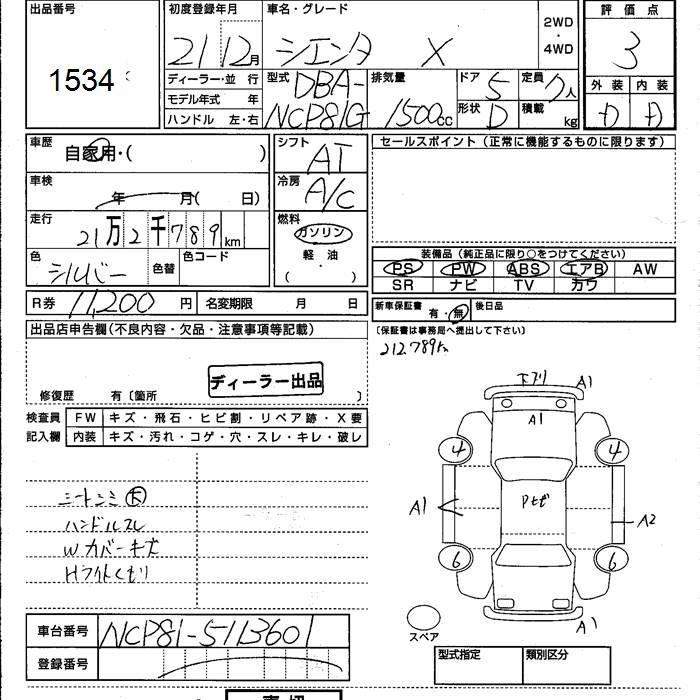 出品番号
1534
初度登録年月
21 12月
車名・グレード
シエンタ X
2WD
・
4WD
評価点
3
外装 内装
D D
ディーラー・並 行
モデル年式 年
ハンドル 左・右
型式
DBA-
NCP81G
排気量
1500cc
ドア 5
形状 D
定員 7人
積載 kg
車歴
自家用・( )
車検
年 月( 日)
走行
21万2千789km
色
シルバー
色替
色コード
シフト
AT
冷房
A/C
燃料
ガソリン
軽・油
( )
セールスポイント(正常に機能するものに限ります)
装備品(純正品に限り○をつけてください)
PS PW ABS エアB AW
SR ナビ TV カワ
R券 11,200 円
名変期限 月 日
新車保証書 有・無
後日品
(保証書は事務局へ提出して下さい)
212.789km
出品店申告欄(不良内容・欠品・注意事項等記載)
ディーラー出品
修復歴 有〔箇所 〕
検査員
記入欄
FW キズ・飛石・ヒビ割・リペア跡・X要
内装 キズ・汚れ・コゲ・穴・スレ・キレ・破レ
シートシミ 大
ハンドルスレ
Wカバーキズ
Hライトくもり
下ガリ A1
A1
4 4
A1 A2
6 6
A1
スペア
車台番号 NCP81-5113601
登録番号
型式指定 類別区分